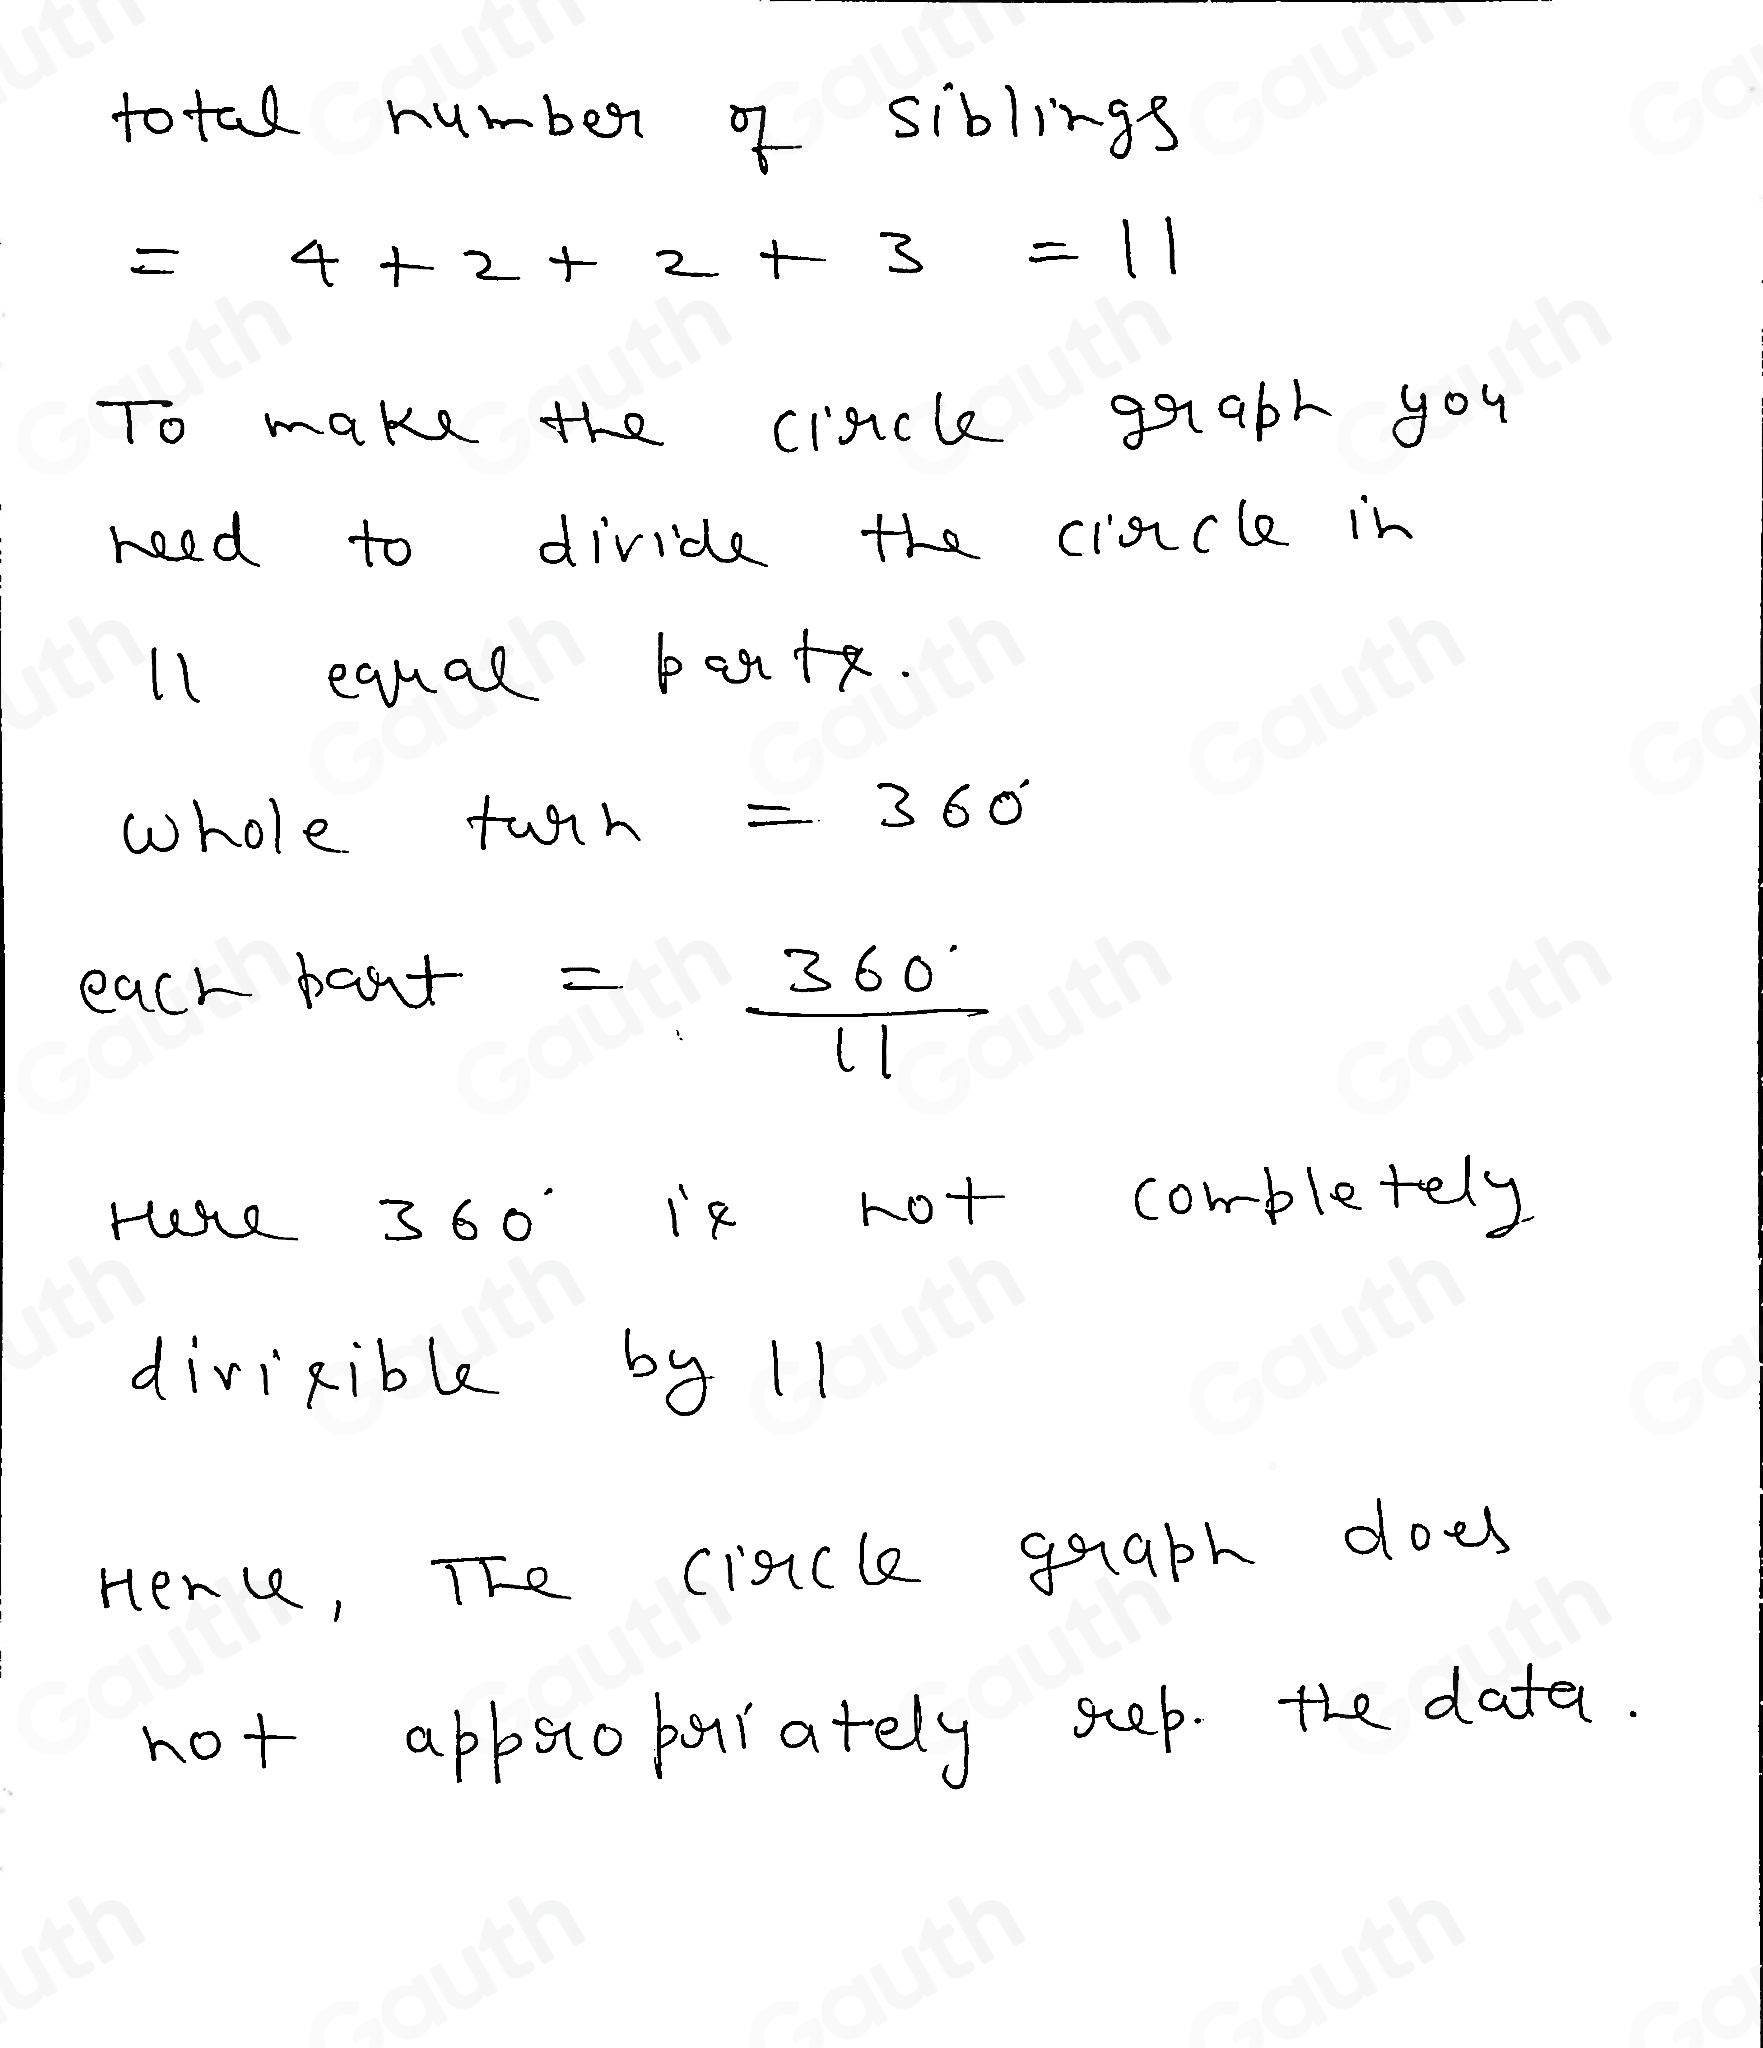 total number of siblings
= 4 + 2 + 2 + 3 = 11
To make the circle graph you
need to divide the circle in
11 equal parts.
whole turn = 360°
each part = 360°
11
Here 360° is not completely
divisible by 11
Hence, The circle graph does
not appropriately rep. the data.
Gauth